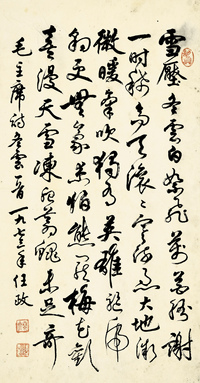 雪壓冬雲白絮飛萬花紛謝
一时稀高天滚滚寒流急大地微
微暖氣吹獨有英雄驱虎
豹更無豪杰怕熊罴梅花歡
喜漫天雪凍死蒼蠅未足奇
毛主席詩冬雲一首一九七三年任政